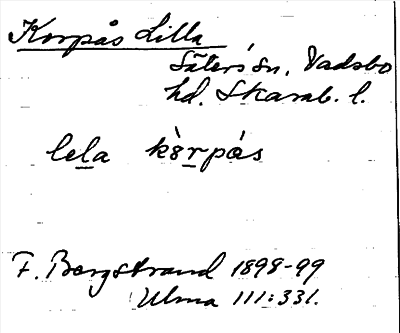 Korpås Lilla
Säters sn, Vadsbo
hd. Skarab. l.
lela kòrpås
F. Bergstrand 1898-99
Ulma 111:331.